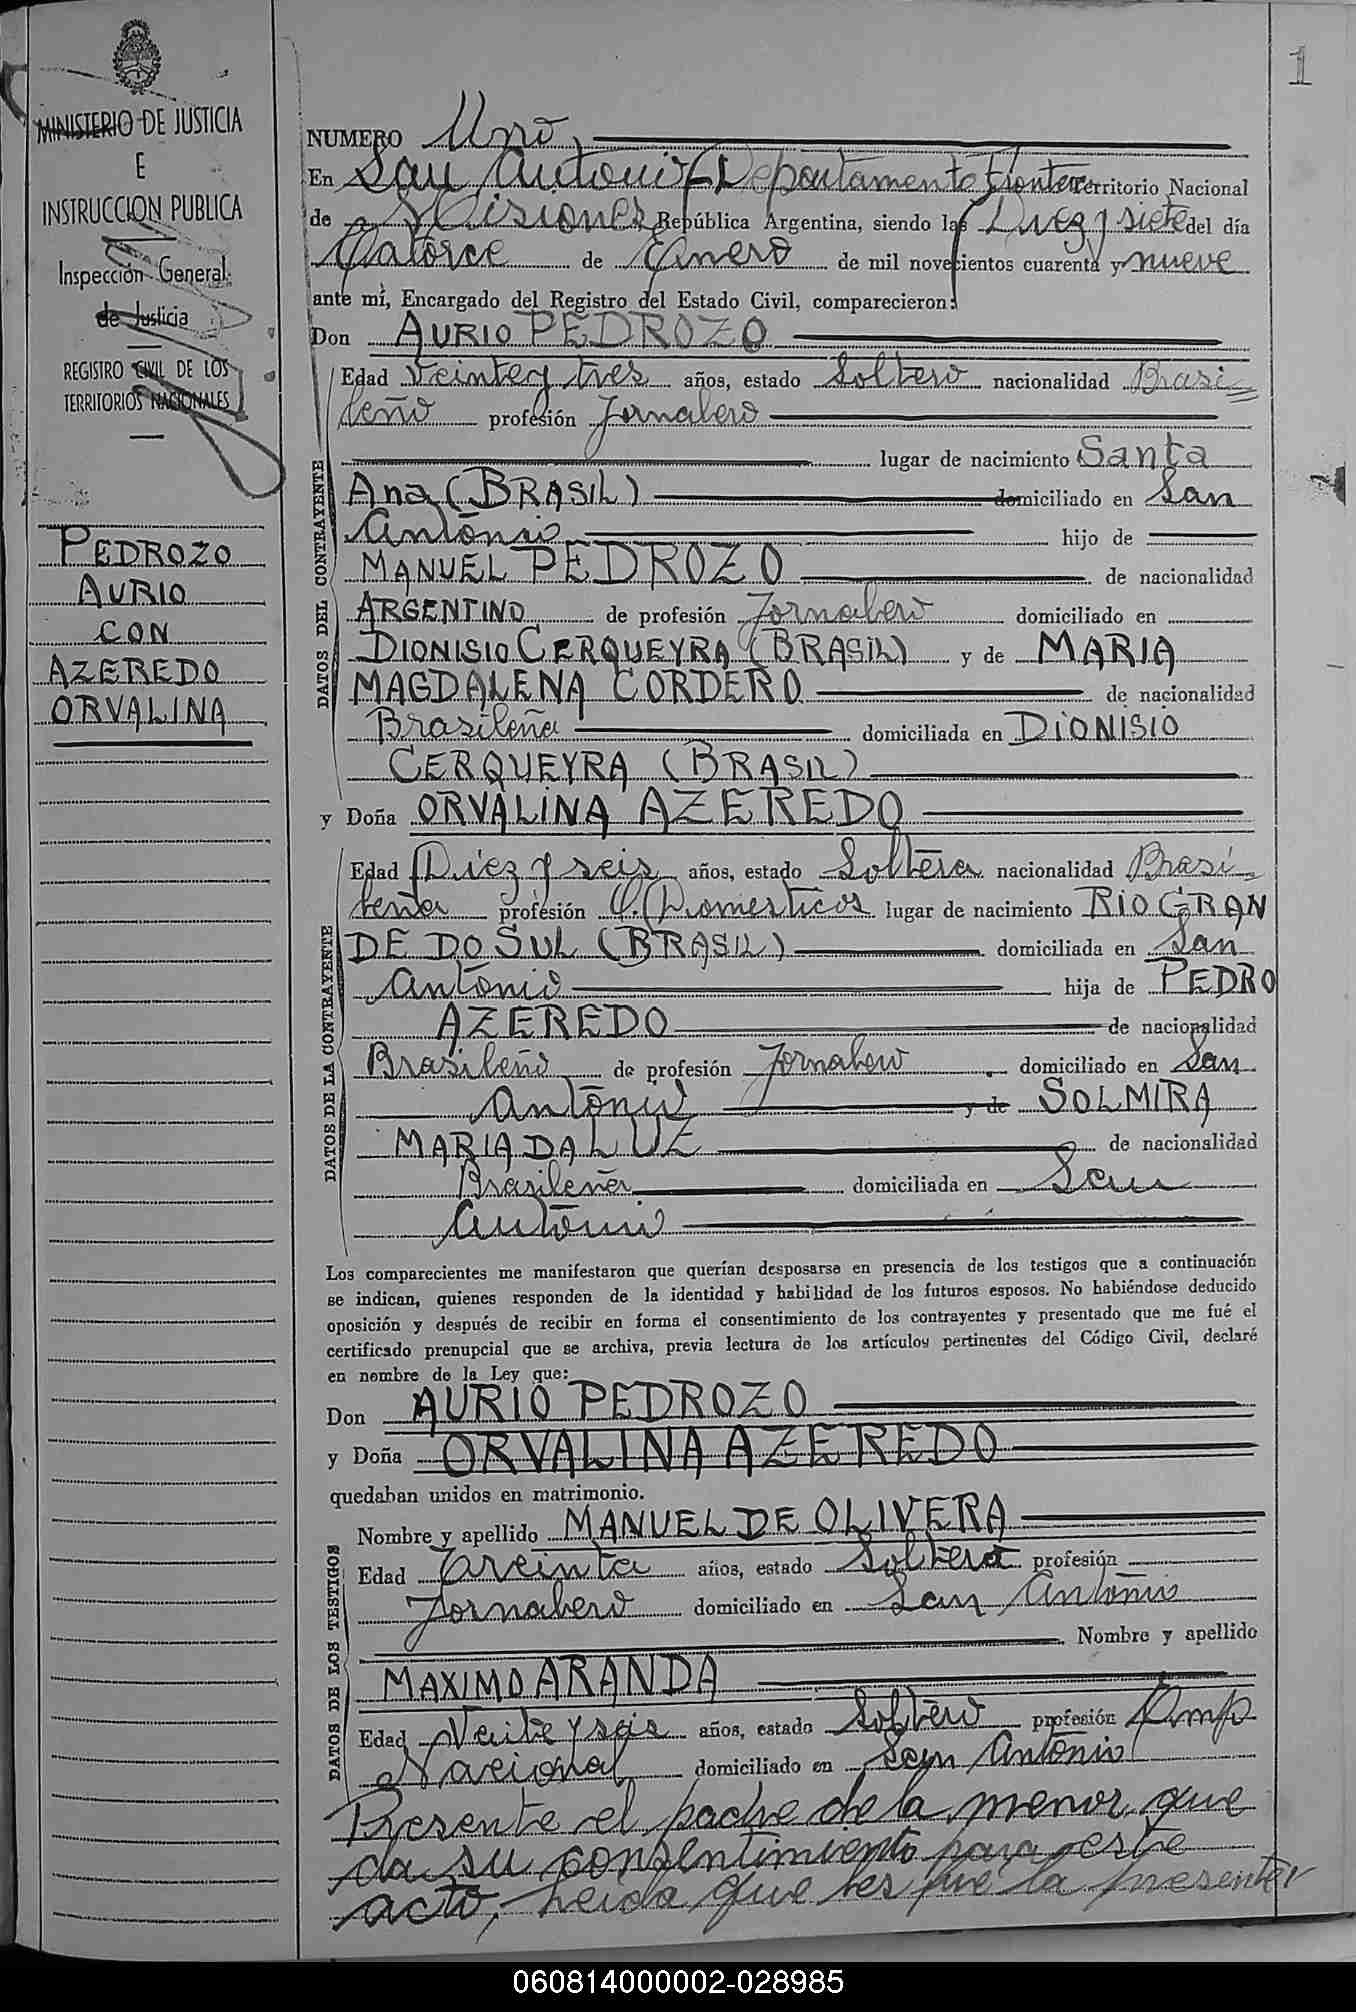 1
MINISTERIO DE JUSTICIA
E
INSTRUCCION PUBLICA
Inspección General
de Justicia
REGISTRO CIVIL DE LOS
TERRITORIOS NACIONALES
PEDROZO
AURIO
CON
AZEREDO
ORVALINA
NUMERO Uno
En San Antonio Departamento Frontera Territorio Nacional
de Misiones República Argentina, siendo las Diez y siete del día
Catorce de Enero de mil novecientos cuarenta y nueve
ante mí, Encargado del Registro del Estado Civil, comparecieron:
Don AURIO PEDROZO
DATOS DEL CONTRAYENTE
Edad Veinte y tres años, estado Soltero nacionalidad Brasi
leño profesión Jornalero
lugar de nacimiento Santa
Ana (BRASIL) domiciliado en San
Antonio hijo de
MANUEL PEDROZO de nacionalidad
ARGENTINO de profesión Jornalero domiciliado en
DIONISIO CERQUEYRA (BRASIL) y de MARIA
MAGDALENA CORDERO de nacionalidad
Brasileña domiciliada en DIONISIO
CERQUEYRA (BRASIL)
y Doña ORVALINA AZEREDO
DATOS DE LA CONTRAYENTE
Edad Diez y seis años, estado Soltera nacionalidad Brasi
leña profesión Q. Domesticos lugar de nacimiento RIO GRAN
DE DO SUL (BRASIL) domiciliada en San
Antonio hija de PEDRO
AZEREDO de nacionalidad
Brasileño de profesión Jornalero domiciliado en San
Antonio y de SOLMIRA
MARIA DA LUZ de nacionalidad
Brasileña domiciliada en San
Antonio
Los comparecientes me manifestaron que querían desposarse en presencia de los testigos que a continuación
se indican, quienes responden de la identidad y habilidad de los futuros esposos. No habiéndose deducido
oposición y después de recibir en forma el consentimiento de los contrayentes y presentado que me fué el
certificado prenupcial que se archiva, previa lectura de los artículos pertinentes del Código Civil, declaré
en nombre de la Ley que:
Don AURIO PEDROZO
y Doña ORVALINA AZEREDO
quedaban unidos en matrimonio.
DATOS DE LOS TESTIGOS
Nombre y apellido MANUEL DE OLIVERA
Edad Treinta años, estado Soltero profesión
Jornalero domiciliado en San Antonio
Nombre y apellido
MAXIMO ARANDA
Edad Veite y seis años, estado Soltero profesión Emp
Nacional domiciliado en San Antonio
Presente el padre de la menor que
da su consentimiento para este
acto, Leida que les fué la presente
060814000002-028985